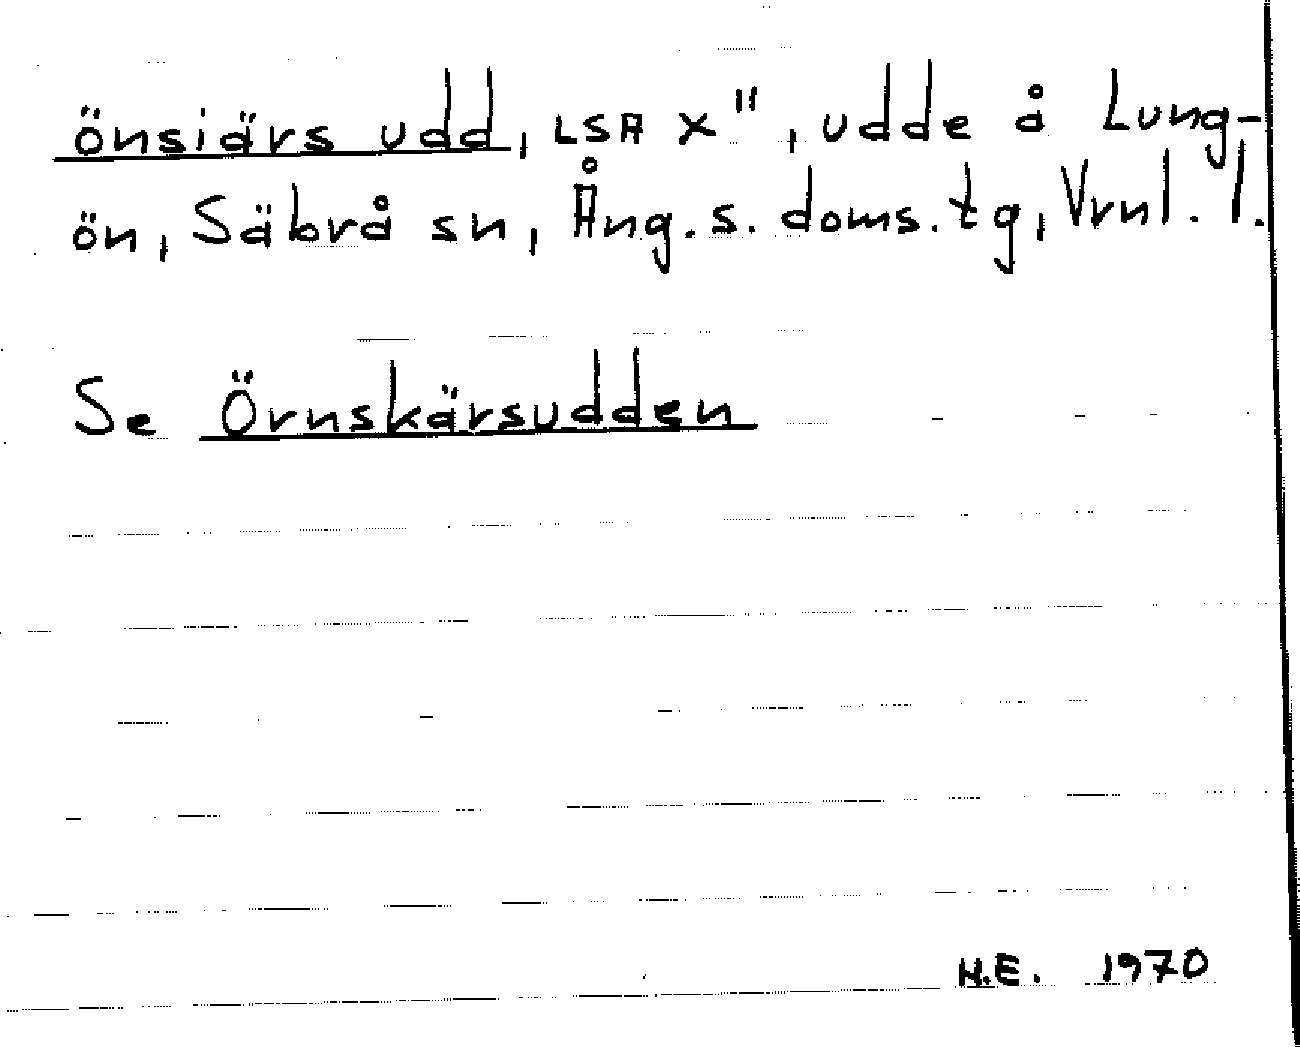 önsiärs udd, LSA X", udde å Lung-
ön, Säbrå sn, Ång. s. doms. tg, Vrnl. l.
Se Örnskärsudden
H.E. 1970